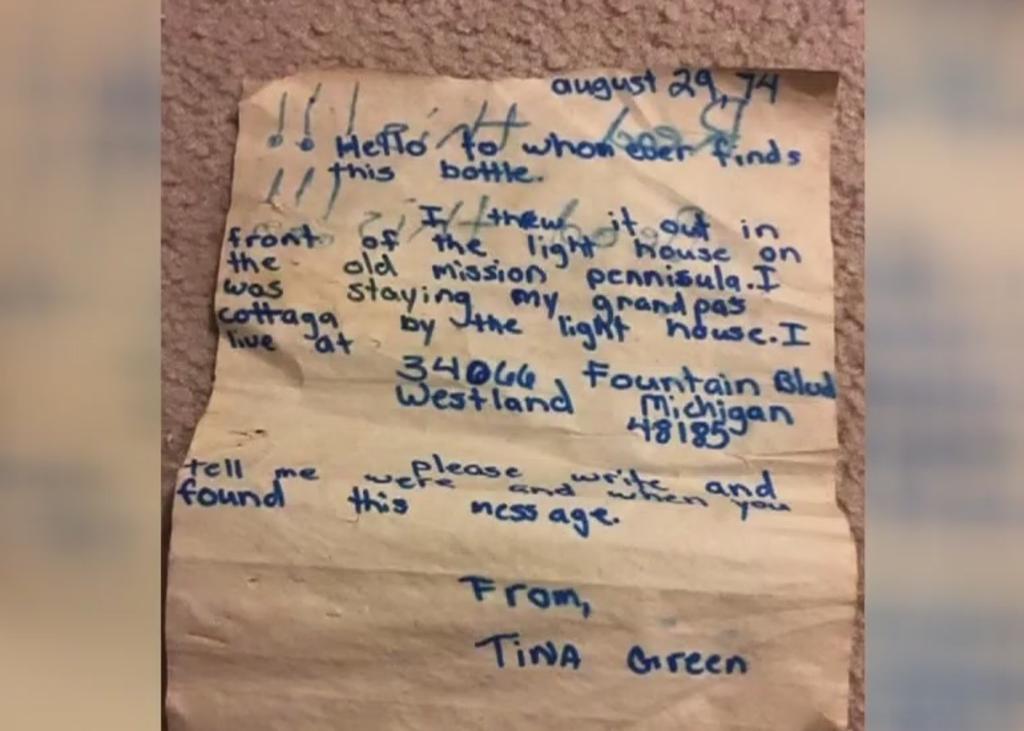 august 29, 74
!!! Hello to whom ever finds
this bottle.
!!! I thew it out in
front of the light house on
the old mission pennisula. I
was staying my grandpas
cottaga by the light house. I
live at
34066 Fountain Blvd
Westland Michigan
48185
please write and
tell me were and when you
found this message.
From,
TiNA Green